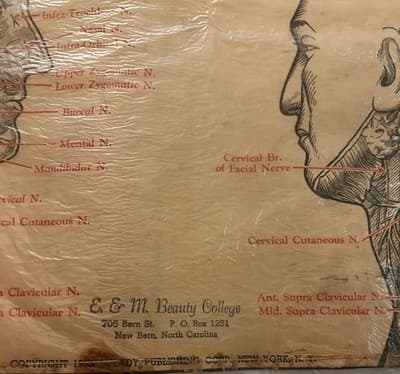 Infra-Trochlear N.
Nasal N.
Infra-Orbital N.
Upper Zygomatic N.
Lower Zygomatic N.
Buccal N.
Mental N.
Mandibular N.
Cervical Br.
of Facial Nerve
rvical N.
ical Cutaneous N.
Cervical Cutaneous N.
a Clavicular N.
a Clavicular N.
Ant. Supra Clavicular N.
Mid. Supra Clavicular N.
E. & M. Beauty College
705 Bern St. P. O. Box 1251
New Bern, North Carolina
COPYRIGHT DY PUBLISHING CORP. NEW YORK, N. Y.